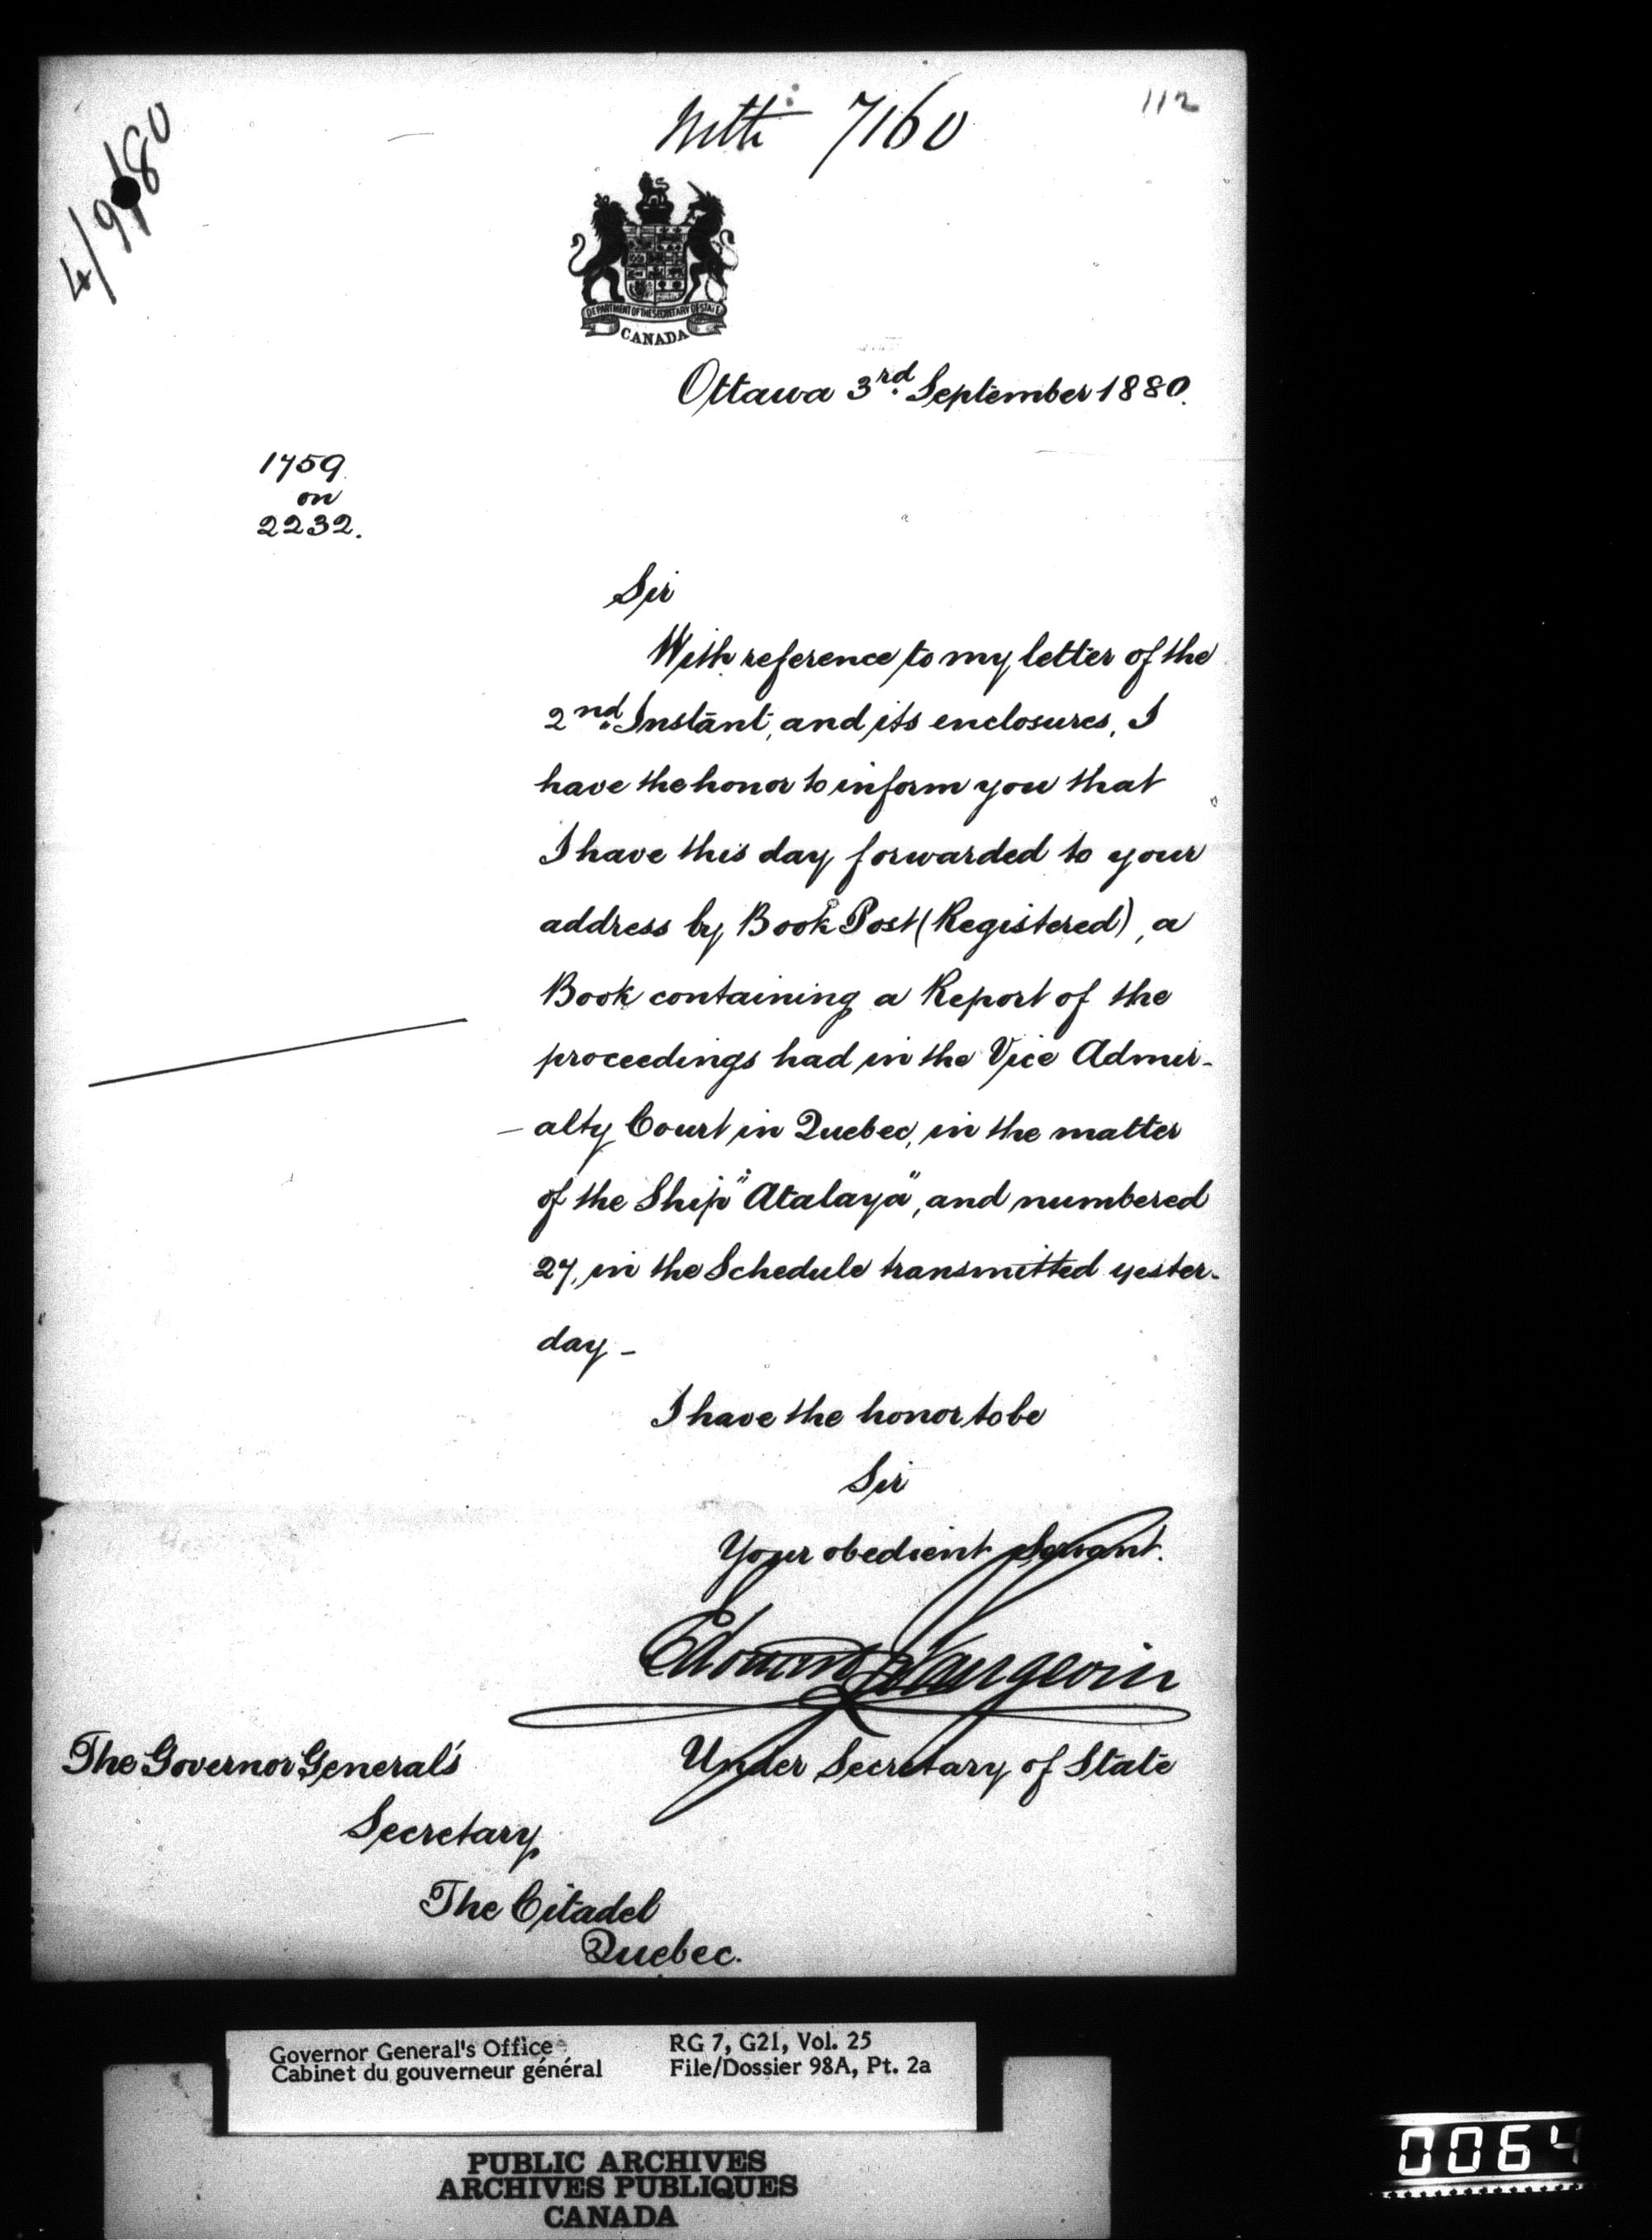 112
With 7160
4/9/80
DEPARTMENT OF THE SECRETARY OF STATE
CANADA
Ottawa 3rd September 1880.
1759
on
2232.
Sir
With reference to my letter of the
2nd Instant, and its enclosures, I
have the honor to inform you that
I have this day forwarded to your
address by Book Post (Registered), a
Book containing a Report of the
proceedings had in the Vice Admir-
-alty Court in Quebec, in the matter
of the Ship "Atalaya", and numbered
27, in the Schedule transmitted yester-
day -
I have the honor to be
Sir
Your obedient Servant.
Edouard J Langevin
Under Secretary of State
The Governor General's
Secretary
The Citadel
Quebec.
Governor General's Office
Cabinet du gouverneur général
RG 7, G21, Vol. 25
File/Dossier 98A, Pt. 2a
PUBLIC ARCHIVES
ARCHIVES PUBLIQUES
CANADA
0064